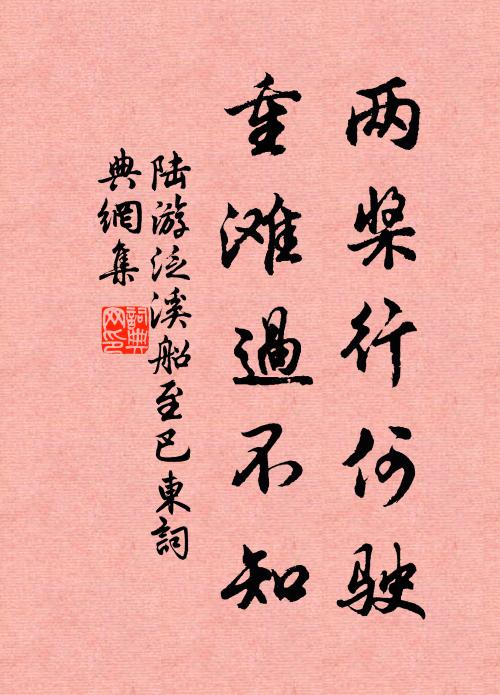 两桨行何驶
重滩過不知
陆游泛溪船至巴東詞
典網集
詞典
网印